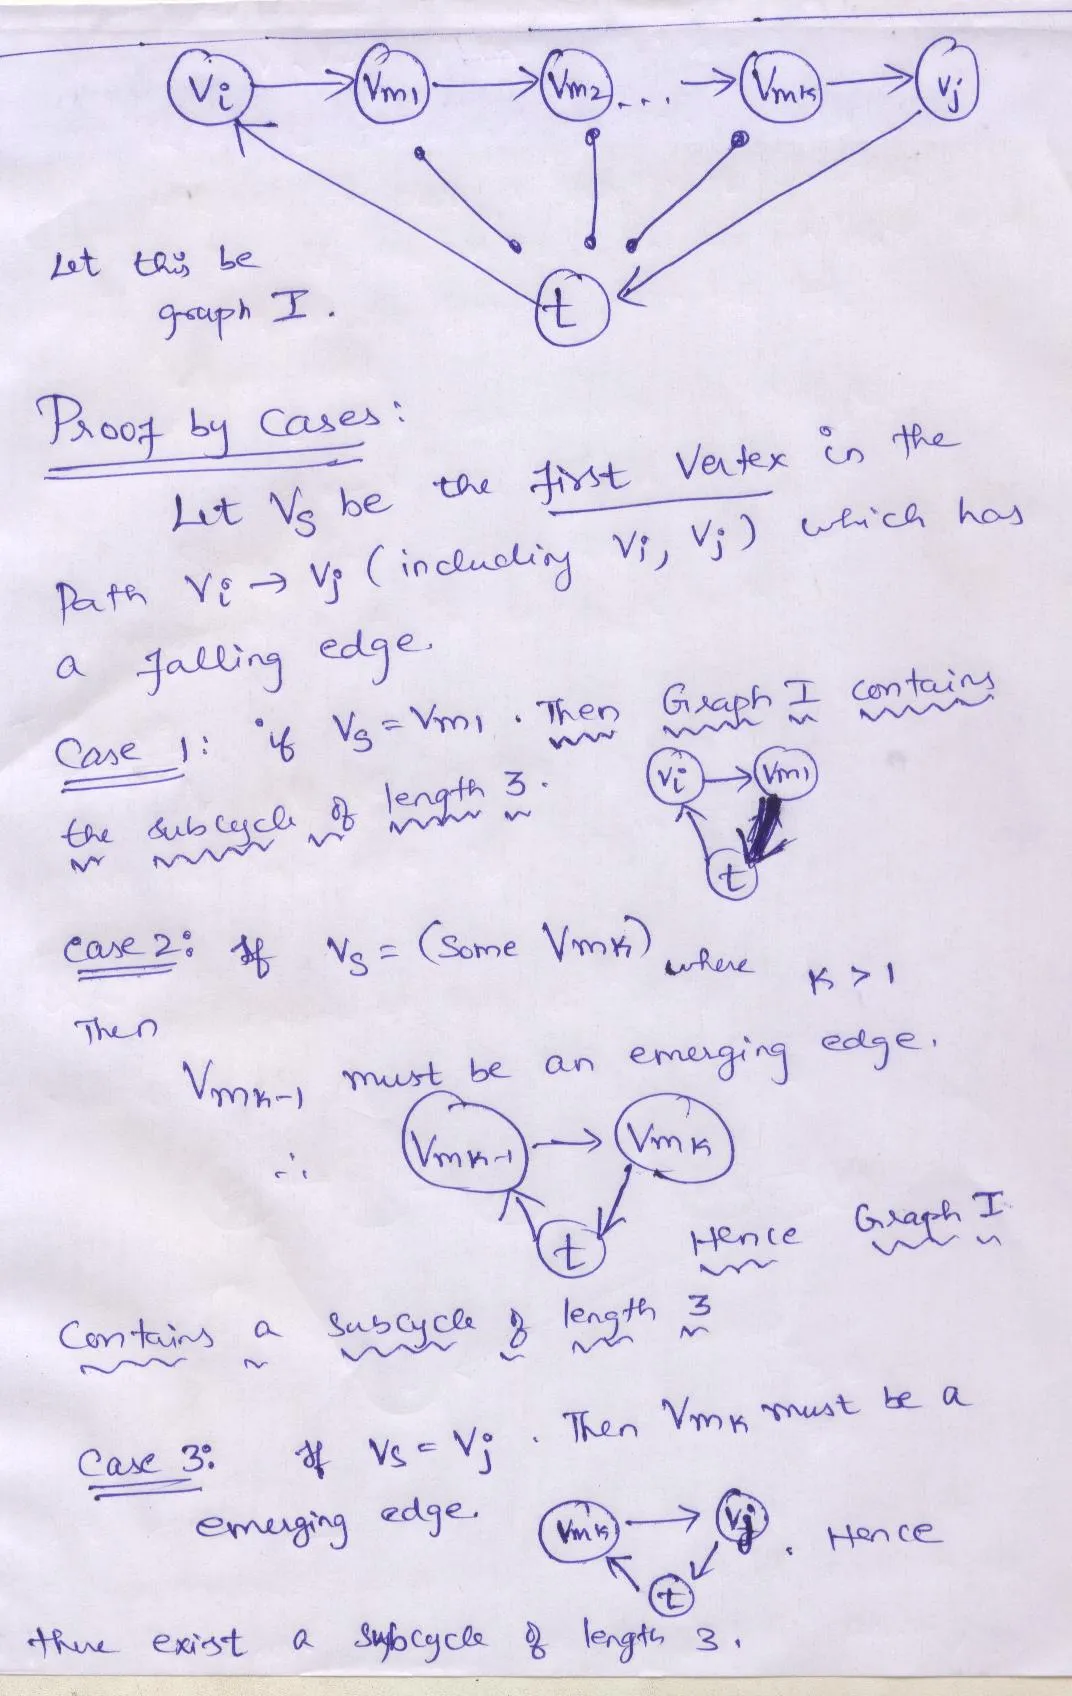 Vi Vm1 Vm2 ... Vmk Vj
Let this be
graph I.
t
Proof by Cases:
Let Vs be the first Vertex in the
Path Vi → Vj (including Vi, Vj) which has
a falling edge.
Case 1: if Vs = Vm1. Then Graph I contains
the subcycle of length 3.
Vi Vm1
t
Case 2: If Vs = (Some Vmk) where k > 1
Then
Vmk-1 must be an emerging edge.
∴ Vmk-1 Vmk
t Hence Graph I
Contains a subcycle of length 3
Case 3: If Vs = Vj. Then Vmk must be a
emerging edge. Vmk Vj. Hence
t
there exist a subcycle of length 3.